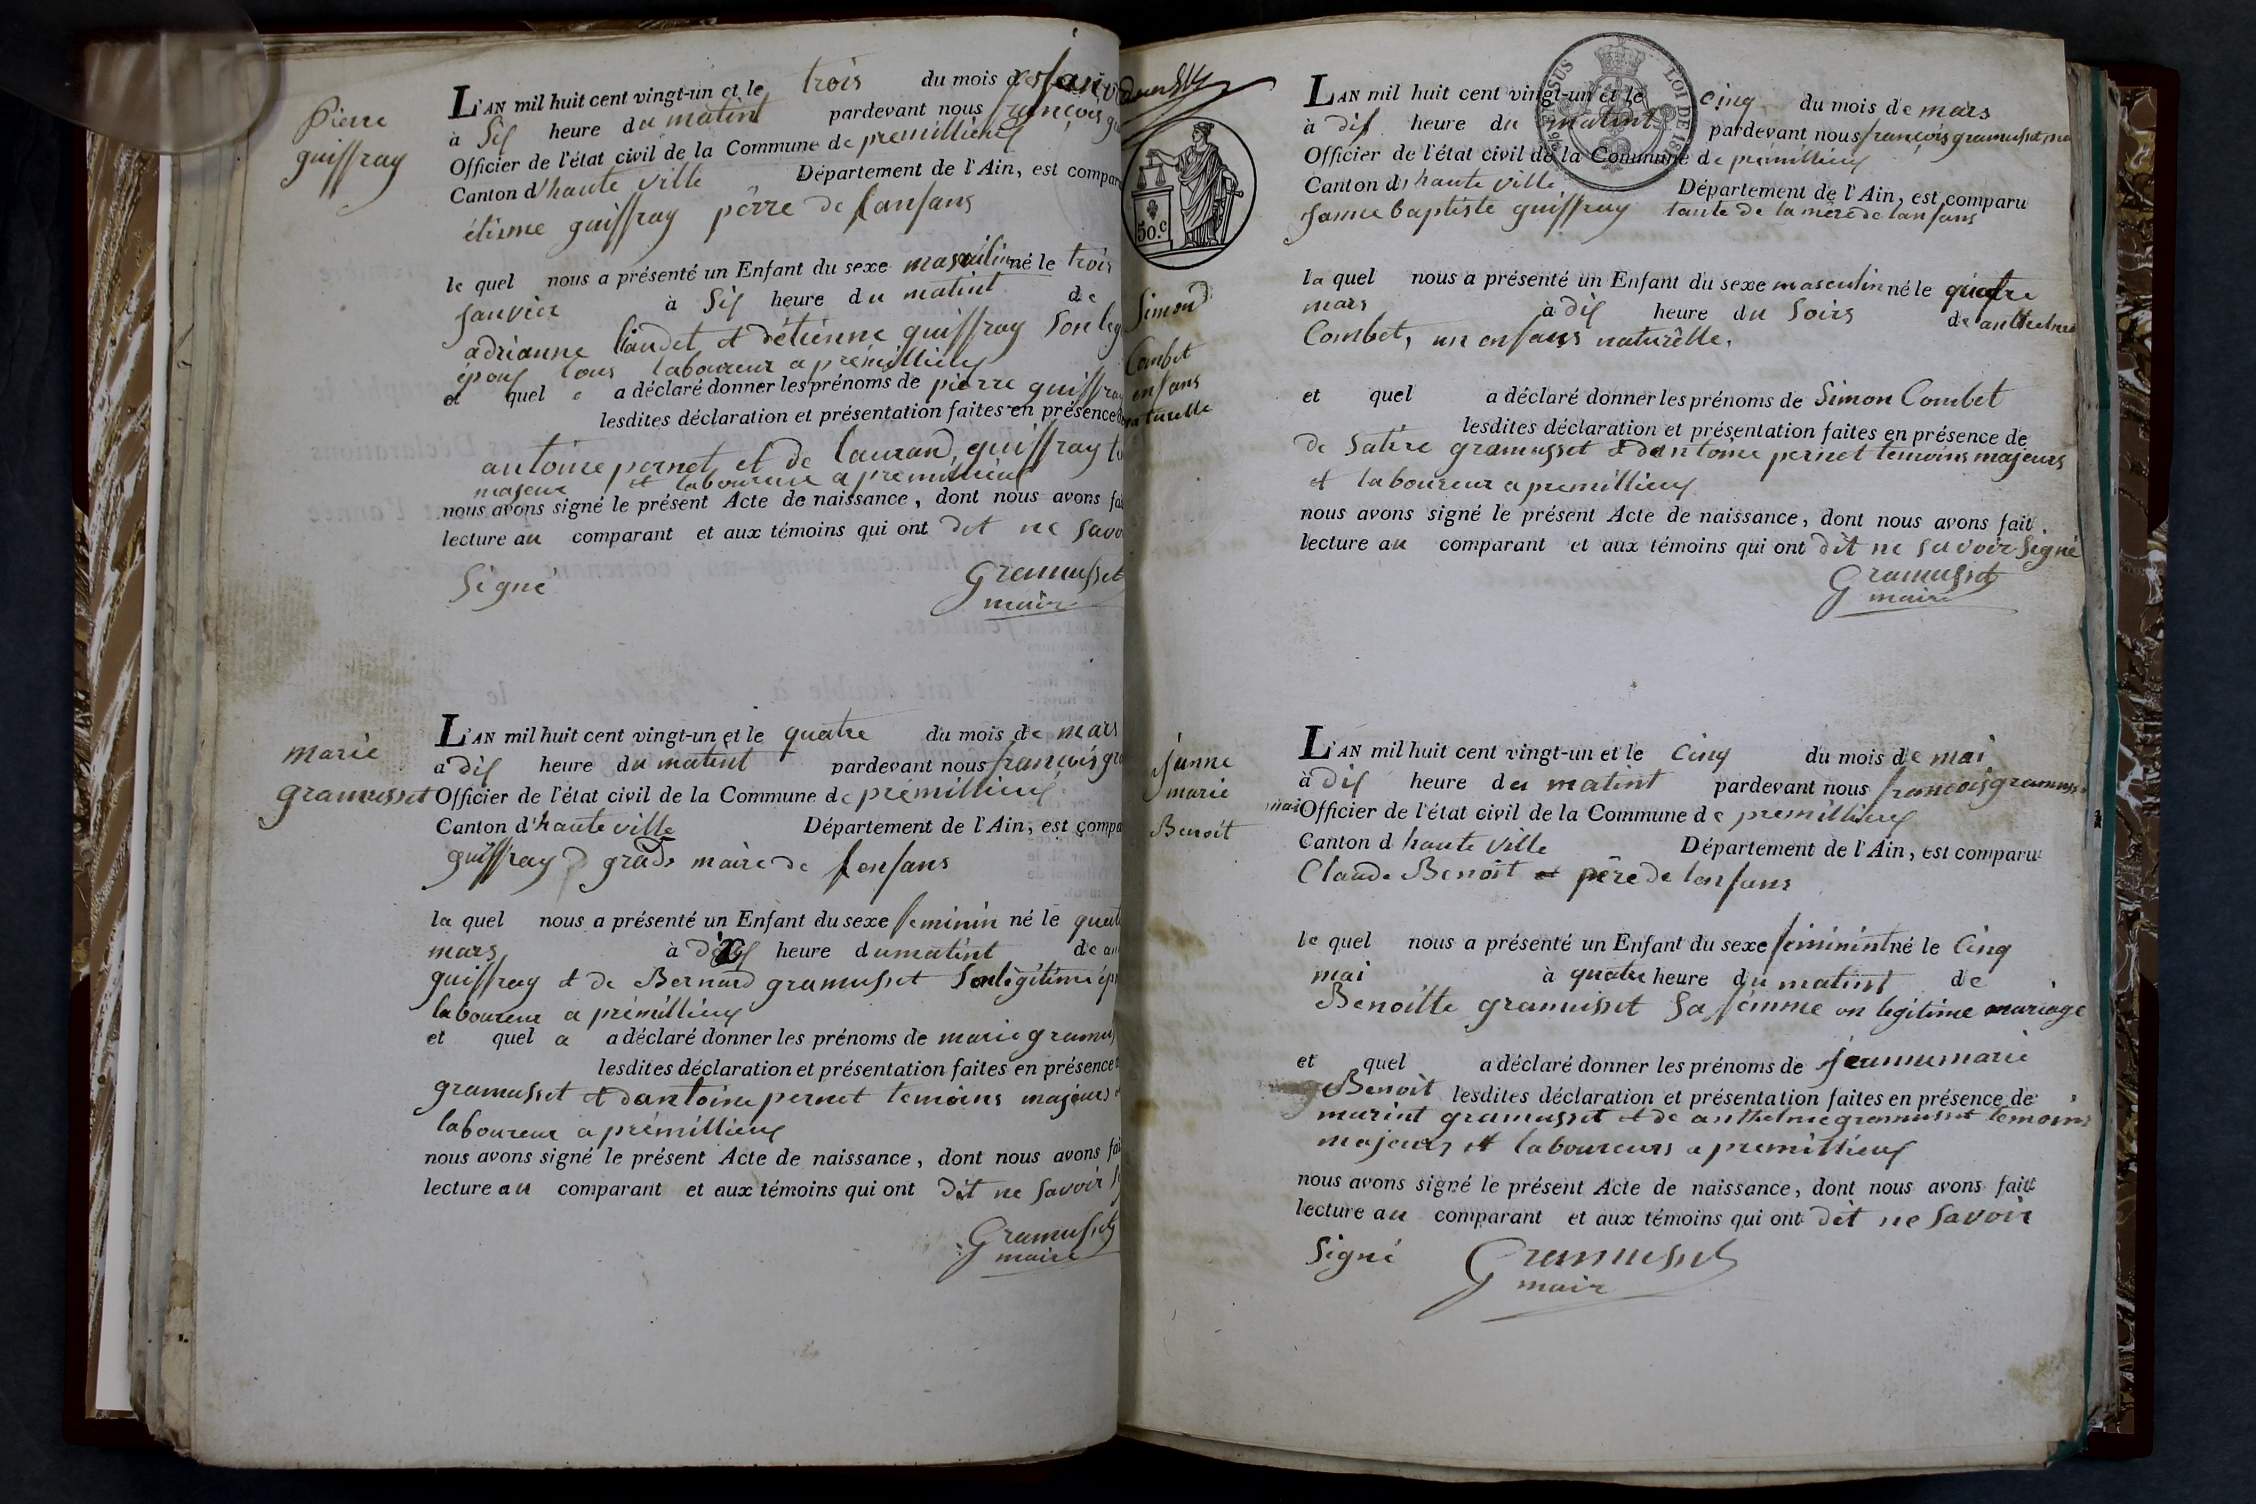 Pierre
guiffray
L'AN mil huit cent vingt-un et le trois du mois de janvi
à Sis heure du matint pardevant nous françois
Officier de l'état civil de la Commune de premillieux
Canton d'haute ville Département de l'Ain, est compar
étienne guiffray pêrre de lanfans
le quel nous a présenté un Enfant du sexe masculin né le trois
janvier à Sis heure du matint de
adrianne et détienne guiffray Son leg
époux tous laboureur a prémillieux
et quel a déclaré donner les prénoms de pierre guiffray
lesdites déclaration et présentation faites en présence de
antoine pernet et de lauran guiffray
majeur et laboureur a premillieux
nous avons signé le présent Acte de naissance, dont nous avons fai
lecture au comparant et aux témoins qui ont dit ne savo
Signé Gramusset
maire
marie
gramusset
L'AN mil huit cent vingt-un et le quatre du mois de mars
a dis heure du matint pardevant nous françois gra
Officier de l'état civil de la Commune de prémillieux
Canton d'haute ville Département de l'Ain, est compa
guiffray grade maire de lenfans
la quel nous a présenté un Enfant du sexe feminin né le quat
mars à heure du matint de an
guiffray et de Bernard gramusset Son légitime ép
laboureur a prémillieux
et quel a a déclaré donner les prénoms de marie gramus
lesdites déclaration et présentation faites en présence
gramusset et dantoine pernet temoins majeurs
laboureur a prémillieux
nous avons signé le présent Acte de naissance, dont nous avons fai
lecture au comparant et aux témoins qui ont dit ne savoir
Gramusset
maire
50.c
Simon
Combet
enfans
naturelle
L'AN mil huit cent vingt-un et le cinq du mois de mars
à dis heure du matint pardevant nous françois gramusset
Officier de l'état civil de la Commune de prémillieux
Canton d'haute ville Département de l'Ain, est comparu
janne baptiste guiffray tante de la mère de lanfans
la quel nous a présenté un Enfant du sexe masculin né le quatre
mars à dis heure du Soirs de anthelme
Combet, un enfans naturêlle.
et quel a déclaré donner les prénoms de Simon Combet
lesdites déclaration et présentation faites en présence de
de gramusset & dantoine pernet temoins majeurs
et laboureur a premillieux
nous avons signé le présent Acte de naissance, dont nous avons fait
lecture au comparant et aux témoins qui ont dit ne savoir Signé
Gramusset
maire
janne
marie
Benoit
L'AN mil huit cent vingt-un et le Cinq du mois de mai
à dis heure du matint pardevant nous francois gramuss
Officier de l'état civil de la Commune de premillieux
Canton d haute ville Département de l'Ain, est comparu
Claude Benoit père de lenfans
le quel nous a présenté un Enfant du sexe feiminint né le Cinq
mai à quatre heure du matint de
Benoitte gramusset Sa fémme en legitime mariage
et quel a déclaré donner les prénoms de jeanne marie
Benoit lesdites déclaration et présentation faites en présence de
marint gramusset et de anthelme gramusset temoins
majeurs et laboureurs a premillieux
nous avons signé le présent Acte de naissance, dont nous avons fait
lecture au comparant et aux témoins qui ont dit ne Savoir
Signé Gramusset
mair